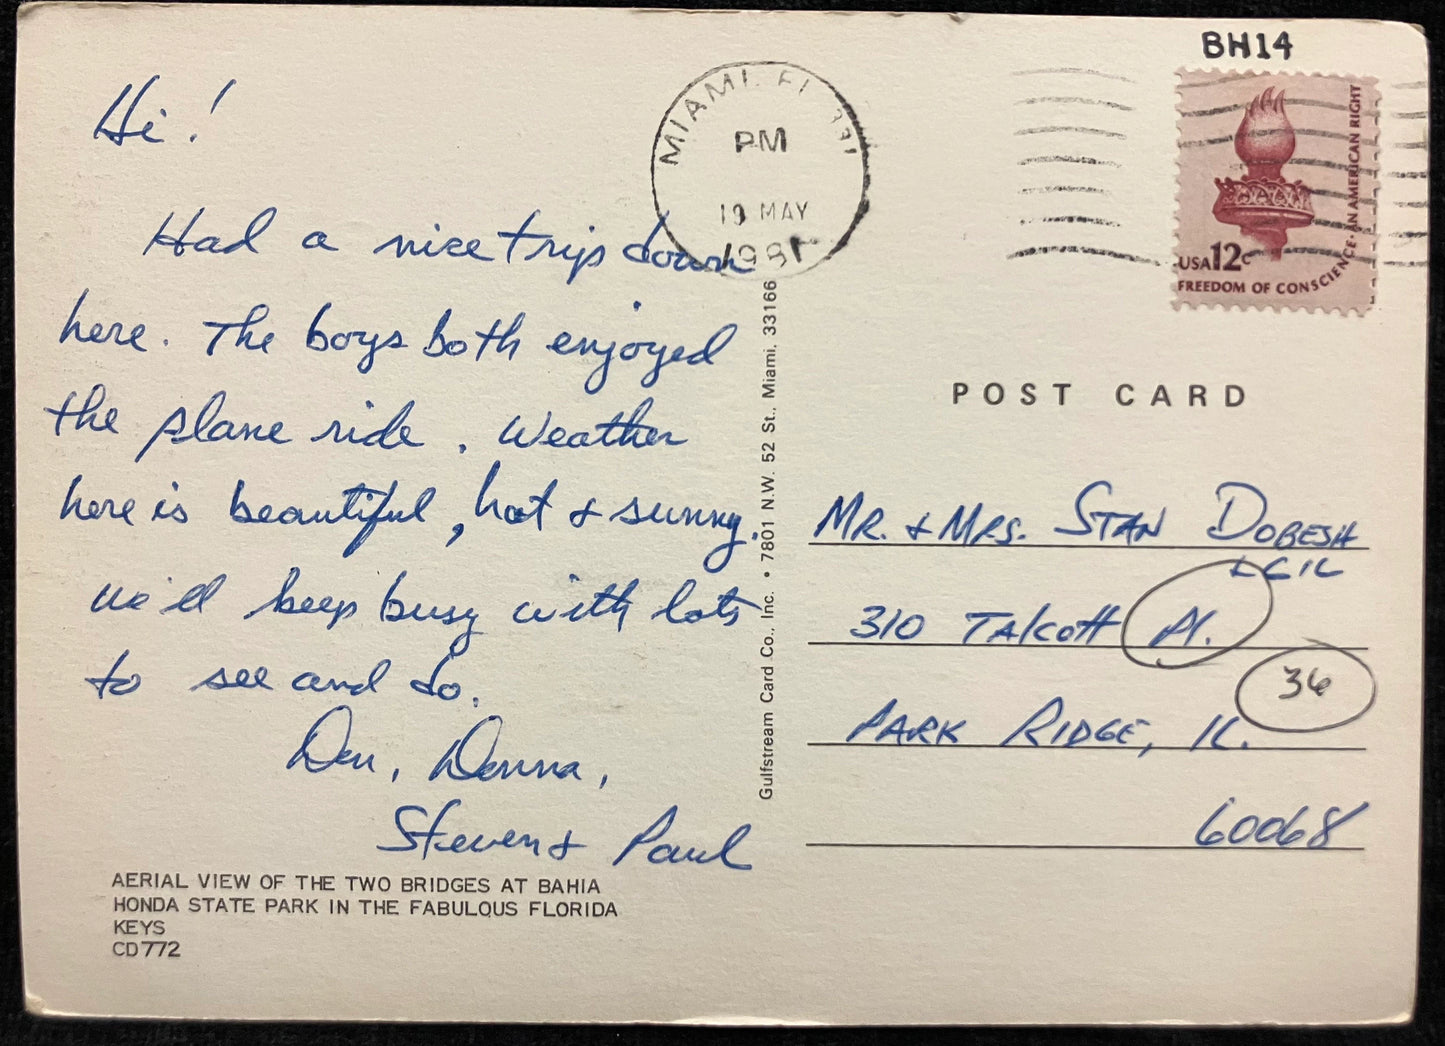 BH14
MIAMI, FL 331
PM
19 MAY
1981
USA 12c
FREEDOM OF CONSCIENCE - AN AMERICAN RIGHT
Hi!
Had a nice trip down
here. The boys both enjoyed
the plane ride. Weather
here is beautiful, hot & sunny.
We'll keep busy with lots
to see and do.
Den, Donna,
Steven & Paul
AERIAL VIEW OF THE TWO BRIDGES AT BAHIA
HONDA STATE PARK IN THE FABULOUS FLORIDA
KEYS
CD772
Gulfstream Card Co., Inc. • 7801 N.W. 52 St., Miami, 33166
POST CARD
MR. & MRS. STAN DOBESH
310 TALCOTT Pl.
36
PARK RIDGE, IL.
60068